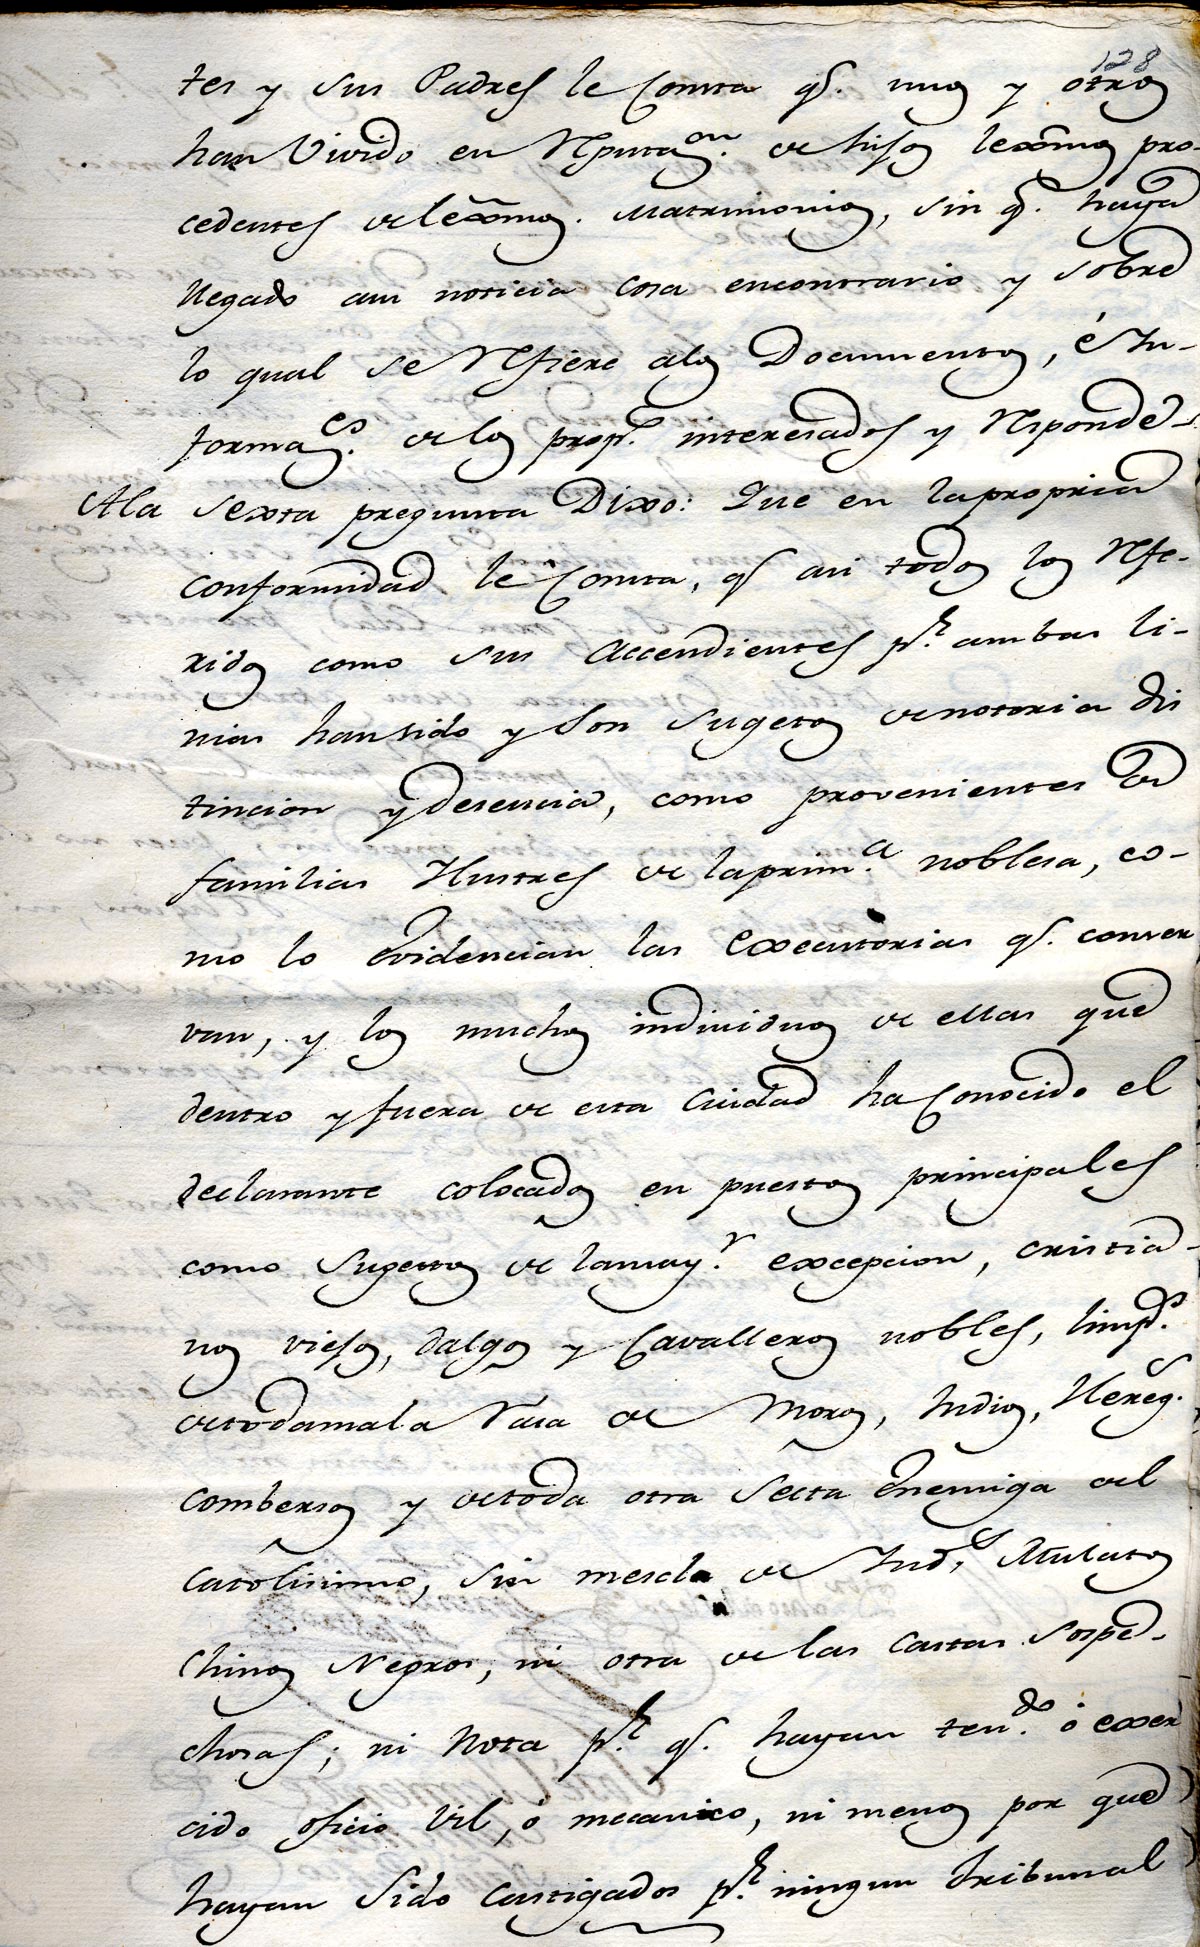 128
tes y sus Padres le Consta qe. unos y otros
han Vivido en Reputaon. de hijos lexmos pro-
cedentes de lexmos. Matrimonios, sin q. haya
llegado asu noticia cosa encontrario y sobre
lo qual se Refiere alos Documentos, é In-
formaes. de los props. interesados y Responde
Ala sexta pregunta Dixo: Que en lapropria
conformidad le Consta, qe asi todos los Refe-
ridos como sus Accendientes pr. ambas li-
nias hansido y son sugetos denotoria dis
tincion y desencia, como provenientes de
familias Ylustres de laprima. noblesa, co-
mo lo evidencian las Executorias qe. conser
van, y los muchos individuos de ellas que
dentro y fuera de esta Ciudad ha Conocido el
declarante colocados en puestos principales
como sugettos de lamayr. excepcion, cristia-
nos viejos, dalgos y Cavalleros nobles, limps.
detodamala Rasa de Moros, Judios, Hereges.
combersos y detoda otra Secta Enemiga del
catolisismo, sin mescla de Inds. Mulatos
Chinos Negros, ni otra de las Castas sospe-
chosas; ni Nota pr. qe. hayan tendo. ó exer
cido oficio Vil, ó mecanico, ni menos por que
hayan sido Castigados pr. ningun tribunal